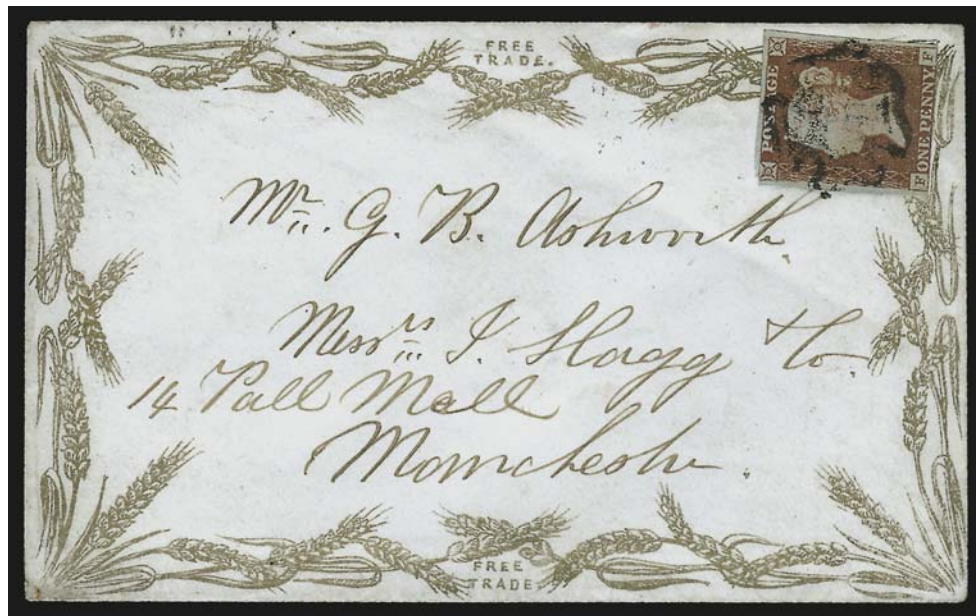 FREE
TRADE.
POSTAGE
ONE PENNY
F
F
Mr. G. B. Ashworth
Messrs. J. Slagg & Co.
14 Pall Mall
Manchester.
FREE
TRADE.